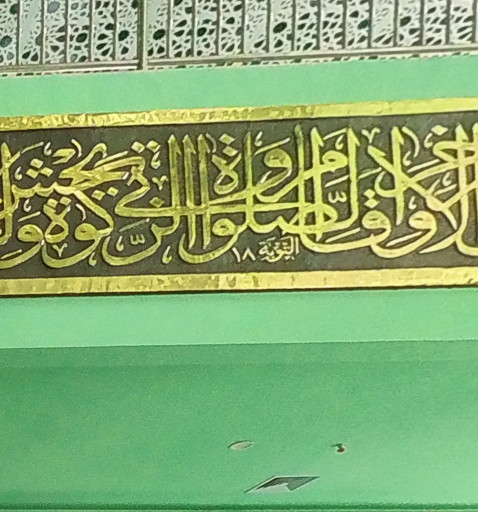 الاخر واقام الصلوة واتى الزكوة ولم يخش
التوبة ١٨